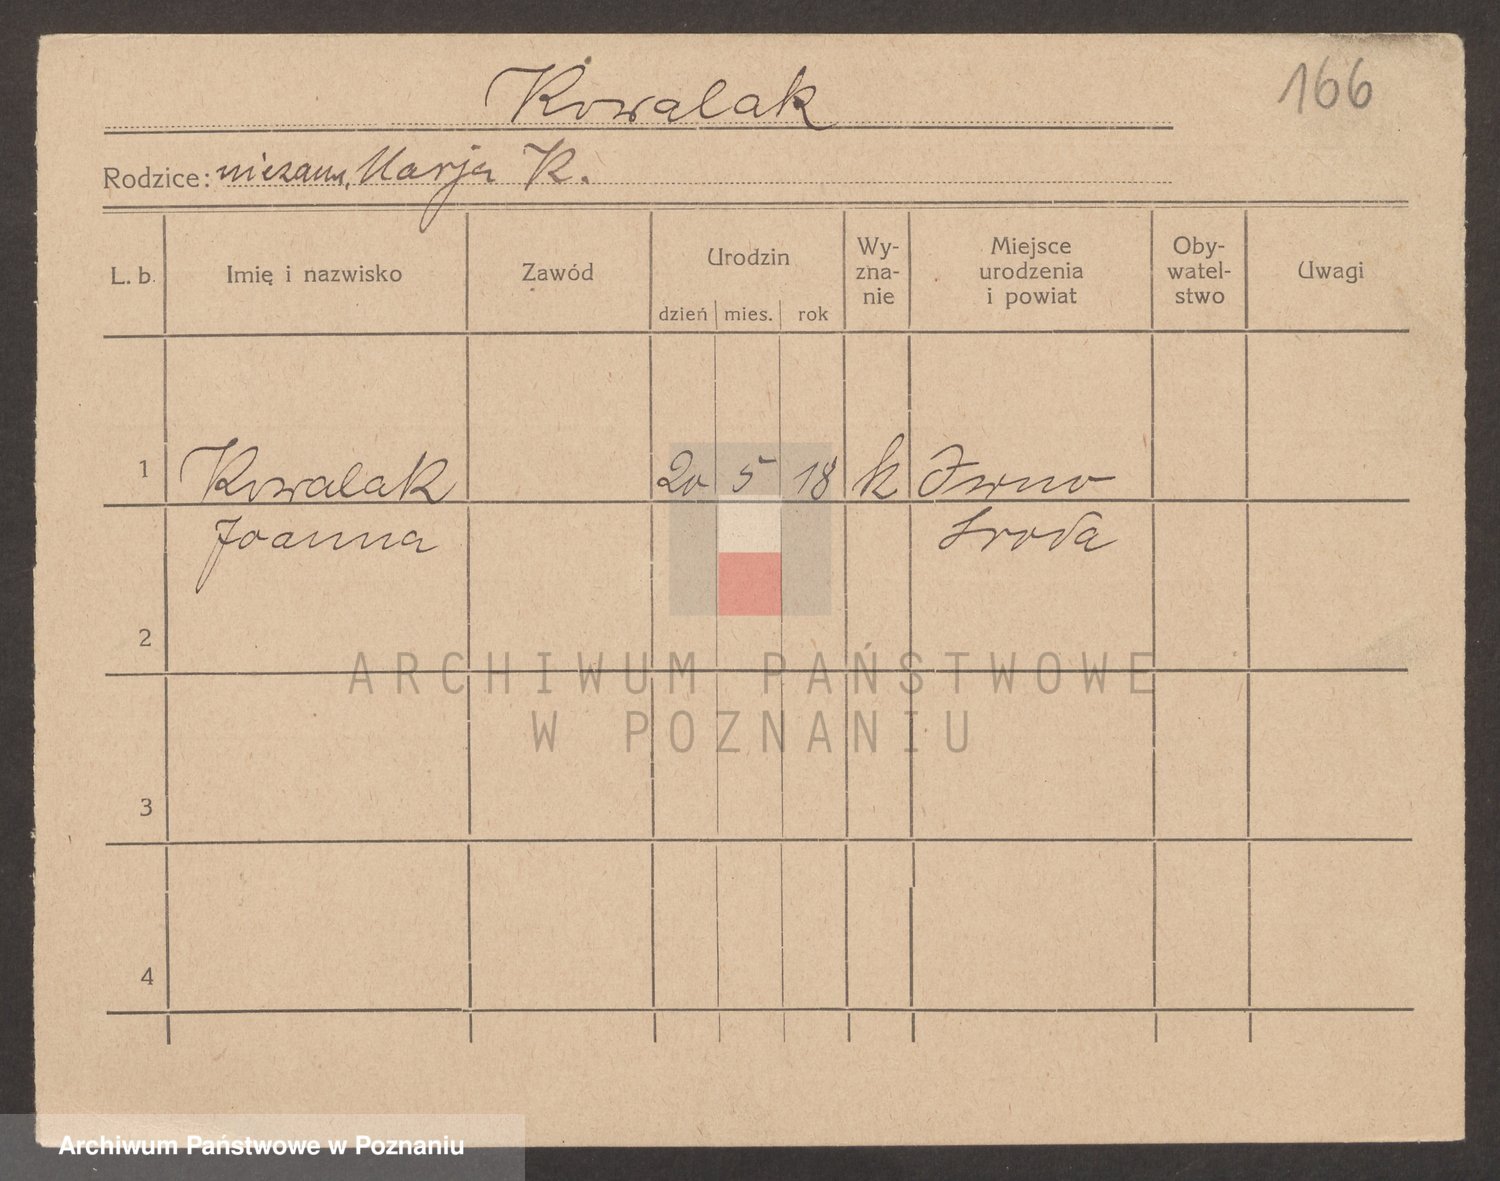 Kowalak
166
Rodzice: niezam. Marja K.
L. b.
Imię i nazwisko
Zawód
Urodzin
dzień mies. rok
Wy-
zna-
nie
Miejsce
urodzenia
i powiat
Oby-
watel-
stwo
Uwagi
1 Kowalak 20 5 18 k Iwno
Joanna Sroda
2
3
4
ARCHIWUM PAŃSTWOWE
W POZNANIU
Archiwum Państwowe w Poznaniu